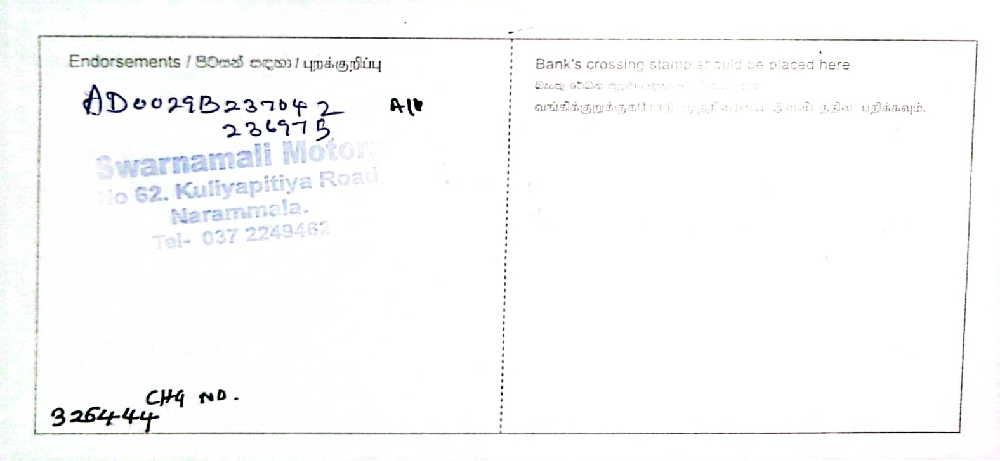 Endorsements / පිටසන් සඳහා / புறக்குறிப்பு
AD0029B237042 A/C
23697B
Swarnamali Motors
No 62. Kuliyapitiya Road
Narammala.
Tel- 037 2249462
CHQ NO.
326444
Bank's crossing stamp should be placed here
பதிக்கவும்.